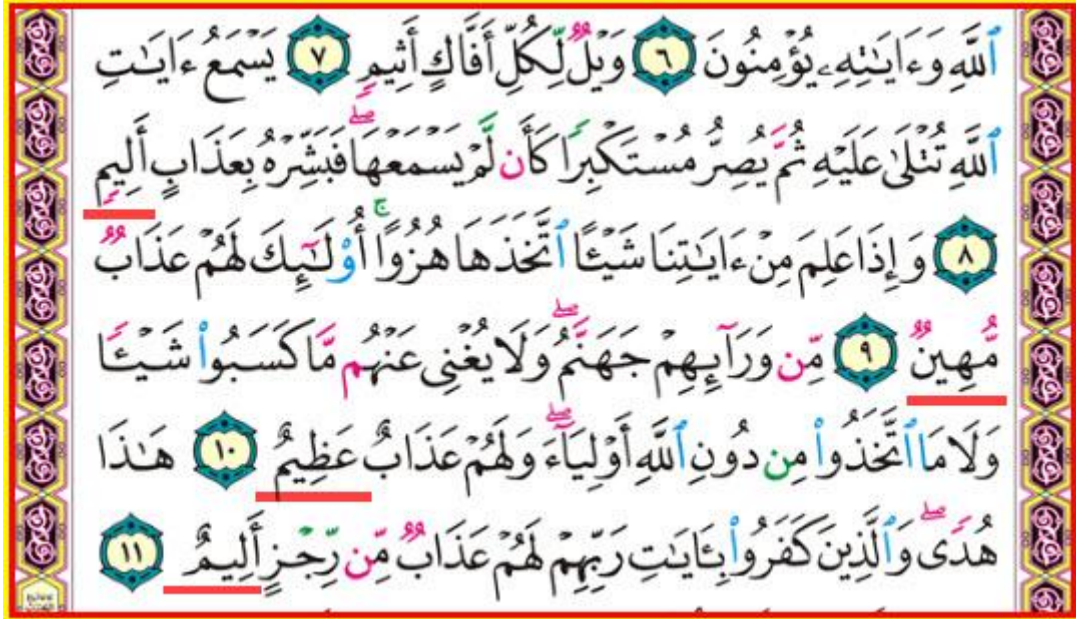 ٱللَّهِ وَءَايَـٰتِهِۦ يُؤْمِنُونَ ٦ وَيْلٌ لِّكُلِّ أَفَّاكٍ أَثِيمٍ ٧ يَسْمَعُ ءَايَـٰتِ
ٱللَّهِ تُتْلَىٰ عَلَيْهِ ثُمَّ يُصِرُّ مُسْتَكْبِرًا كَأَن لَّمْ يَسْمَعْهَا ۖ فَبَشِّرْهُ بِعَذَابٍ أَلِيمٍ
٨ وَإِذَا عَلِمَ مِنْ ءَايَـٰتِنَا شَيْـًٔا ٱتَّخَذَهَا هُزُوًا ۚ أُو۟لَـٰٓئِكَ لَهُمْ عَذَابٌ
مُّهِينٌ ٩ مِّن وَرَآئِهِمْ جَهَنَّمُ ۖ وَلَا يُغْنِى عَنْهُم مَّا كَسَبُوا۟ شَيْـًٔا
وَلَا مَا ٱتَّخَذُوا۟ مِن دُونِ ٱللَّهِ أَوْلِيَآءَ ۖ وَلَهُمْ عَذَابٌ عَظِيمٌ ١٠ هَـٰذَا
هُدًى ۖ وَٱلَّذِينَ كَفَرُوا۟ بِـَٔايَـٰتِ رَبِّهِمْ لَهُمْ عَذَابٌ مِّن رِّجْزٍ أَلِيمٌ ١١